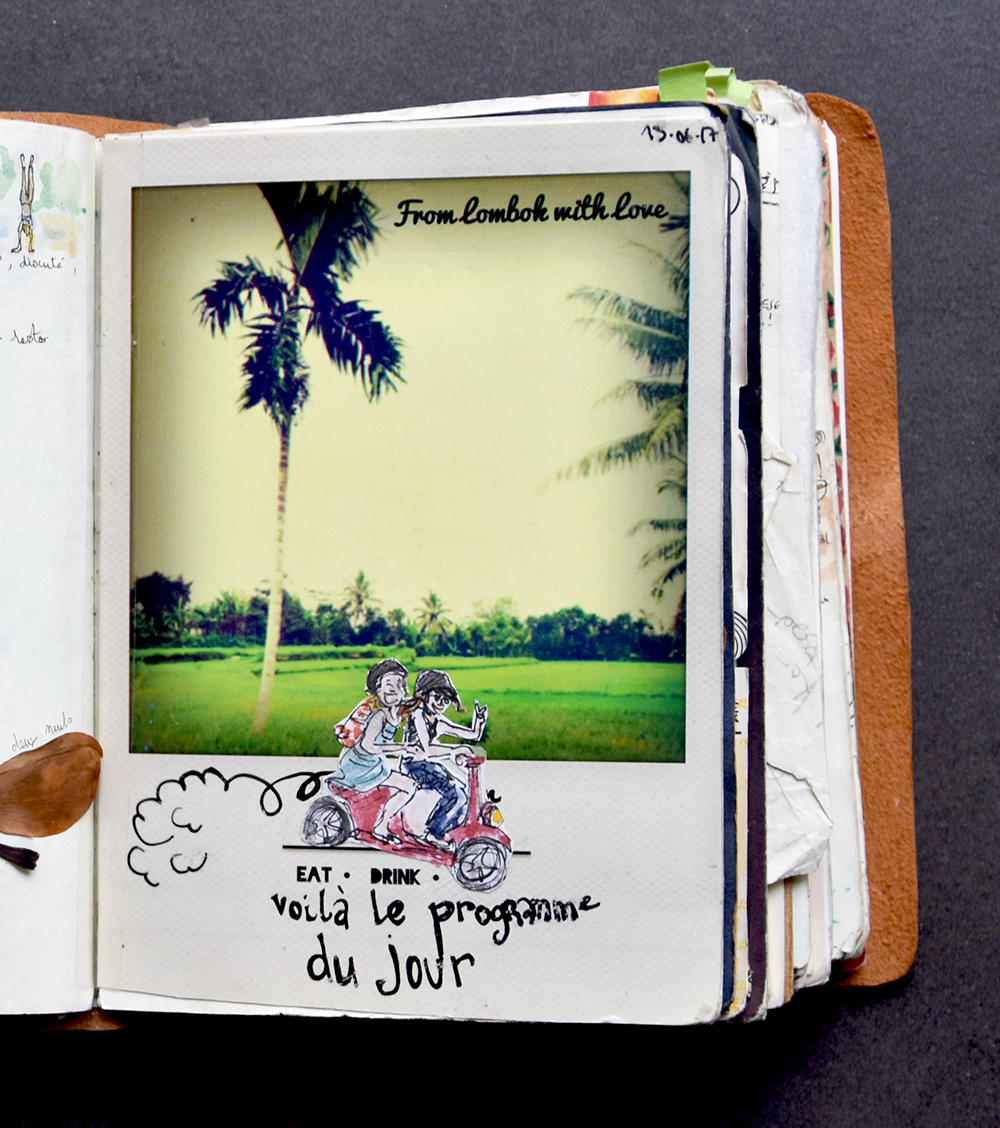 , discuté,
resto
deux nuits
19.06.17
From Lombok with Love
EAT • DRINK •
voilà le programme
du jour